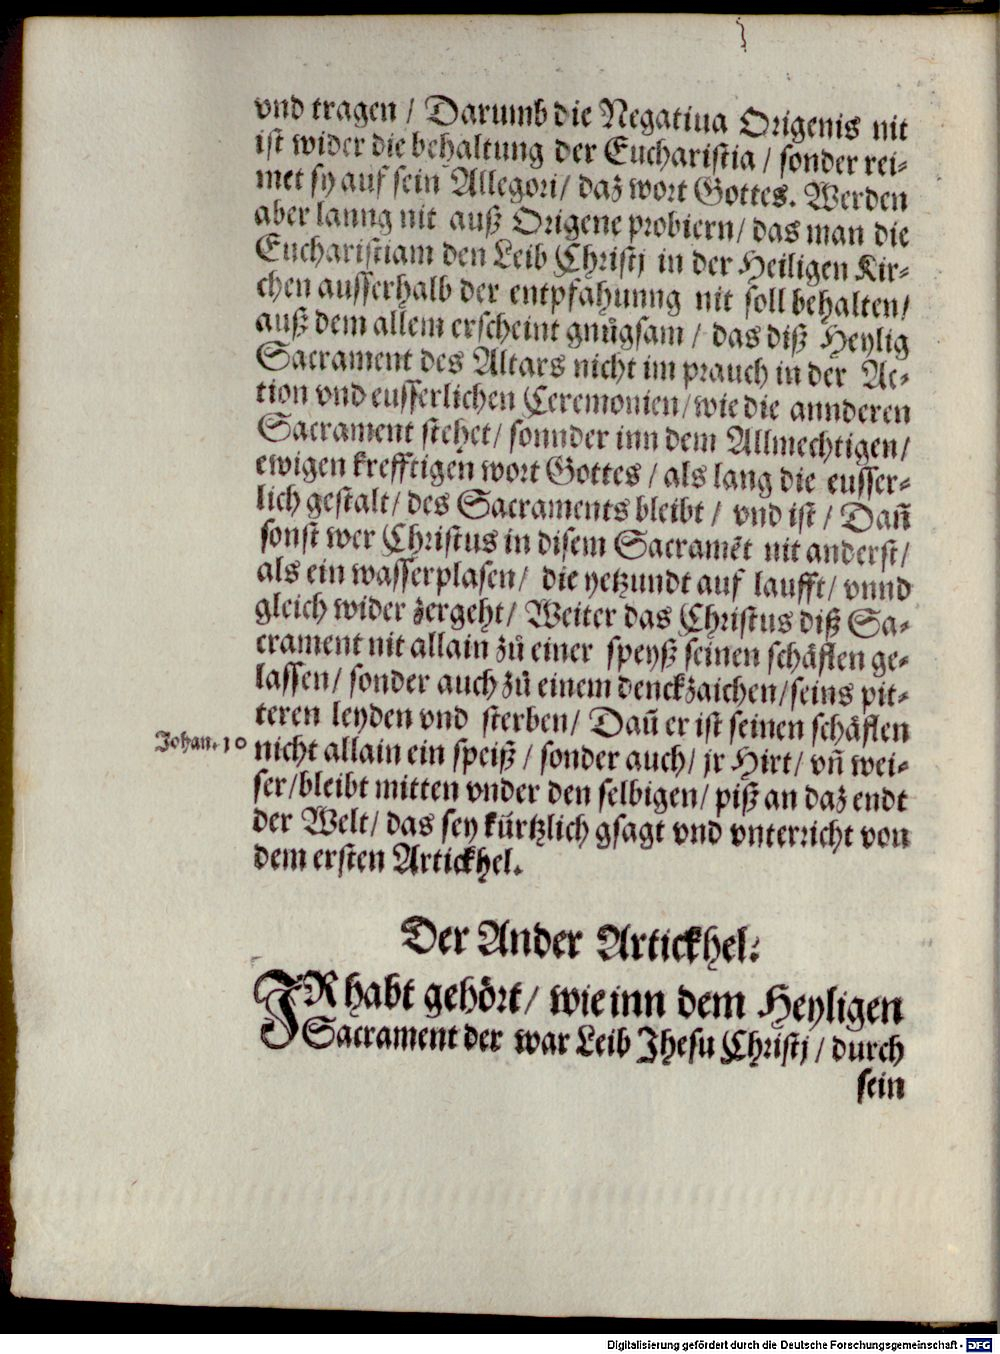 vnd tragen / Darumb die Negatiua Origenis nit
ist wider die behaltung der Eucharistia / sonder rei-
met sy auf sein Allegori / daz wort Gottes. Werden
aber lanng nit auß Origene probiern / das man die
Eucharistiam den Leib Christj in der Heiligen Kir-
chen ausserhalb der entpfahunng nit soll behalten /
auß dem allem erscheint gnuͦgsam / das diß Heylig
Sacrament des Altars nicht im prauch in der Ac-
tion vnd eusserlichen Ceremonien / wie die annderen
Sacrament stehet / sonnder inn dem Allmechtigen /
ewigen krefftigen wort Gottes / als lang die eusser-
lich gestalt / des Sacraments bleibt / vnd ist / Dañ
sonst wer Christus in disem Sacramēt nit anderst /
als ein wasserplasen / die yetzundt auf laufft / vnnd
gleich wider zergeht / Weiter das Christus diß Sa-
crament nit allain zuͦ einer speyß seinen schäflen ge-
lassen / sonder auch zuͦ einem denckzaichen / seins pit-
teren leyden vnd sterben / Dañ er ist seinen schäflen
Johan. 10
nicht allain ein speiß / sonder auch / jr Hirt / vñ wei-
ser / bleibt mitten vnder den selbigen / piß an daz endt
der Welt / das sey kürtzlich gsagt vnd vnterricht von
dem ersten Artickhel.
Der Ander Artickhel:
IR habt gehört / wie inn dem Heyligen
Sacrament der war Leib Jhesu Christj / durch
sein
Digitalisierung gefördert durch die Deutsche Forschungsgemeinschaft - DFG